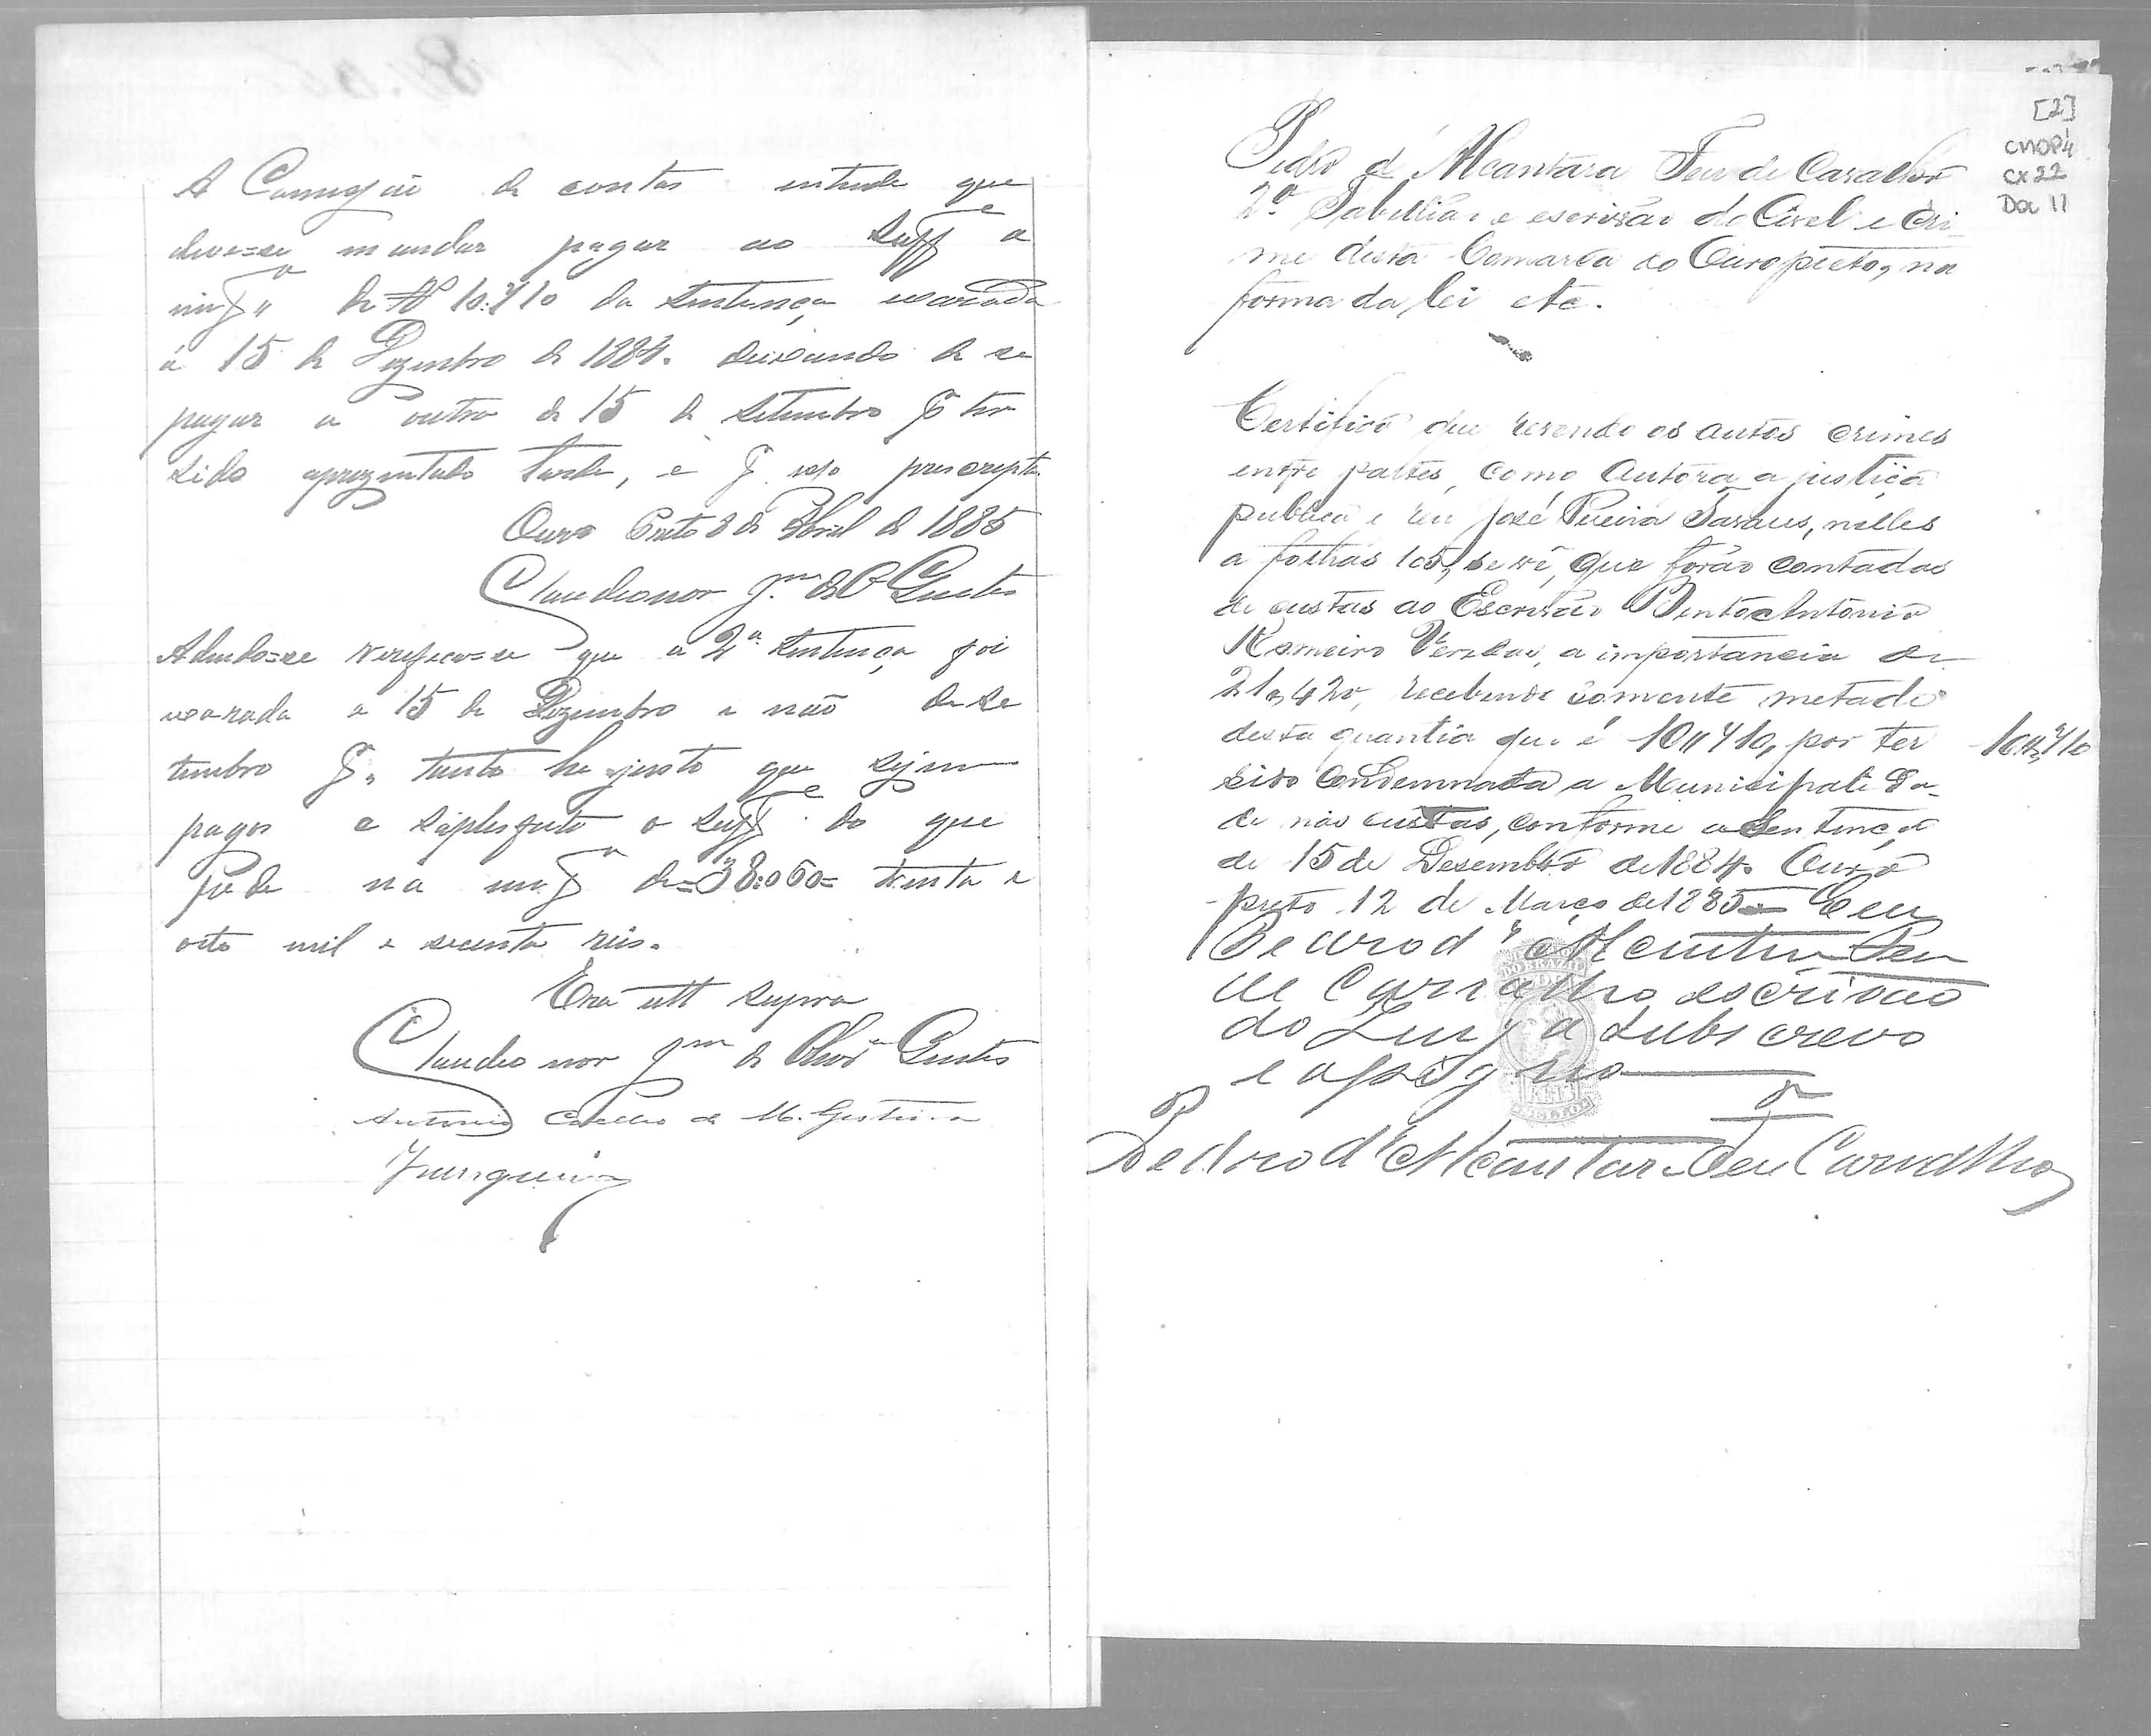 A Commissão de contas entende que
deve=se mandar pagar ao Supp.e a
imp.a de Rs 10:710 da sentença exarada
á 15 de Dezembro de 1884. deixando de se
pagar a outra de 15 de Setembro p.r ter
sido aprezentado tarde, e p. isso prescripta
Ouro Preto 8 de Abril de 1885
Claudionor J.m de O
verifica=se que a 2.a sentença foi
exarada a 15 de Dezembro e não de Se
tembro p.r tanto he justo que sejam
pagos e o Supp.e do que
pede na imp.a de=38:060= trinta e
oito mil e secenta reis.
Era utt supra
Claudionor J.m de Oliv.a
Antonio Coelho de M.
Junqueira
[2]
CMOP
CX 22
Doc 11
Pedro de Alcantara Feu de Carvalho
2.o Tabellião e escrivão do Civel e Cri
me desta Comarca do Ouro preto, na
forma da lei etc.
Certifico que revendo os autos crimes
entre partes, como Autora a justiça
publica e reu José Pereira Tavares, nelles
a folhas 105, se vê, que forão contadas
de custas ao Escrivão Bento Antonio
Romeiro Veredas, a importancia de
21,,420, recebendo somente metade
desta quantia que é 10,,710, por ter 10,,710
sido condemnada a Municipalida-
de nas custas, conforme a Sentença
de 15 de Desembro de 1884. Ouro
preto 12 de Março de 1885 Eeu
Pedro d'Alcantara Feu
de Carvalho escrivão
do Jury a subscrevo
e assigno
DO BRAZIL
REIS
Pedro d'Alcantara Feu Carvalho